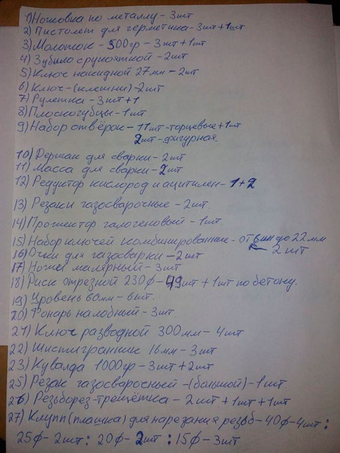 1) Ножовка по металлу - 3шт
2) Пистолет для герметика - 3шт + 1шт
3) Молоток - 500гр - 3шт + 1шт
4) Зубило с рукояткой - 2шт
5) Ключ накидной 27мм - 2шт
6) Ключ - (клешни) - 2шт
7) Рулетка - 3шт + 1
8) Плоскогубцы - 1шт
9) Набор отвёрок - 11шт - торцевые + 1шт
2шт - фигурная
10) Держак для сварки - 2шт
11) Масса для сварки - 2шт
12) Редуктор кислород и ацитилен - 1 + 2
13) Резаки газосварочные - 2шт
14) Прожектор галогеновый - 1шт
15) Набор ключей комбинированные - от 6мм до 22мм
16) Очки для газосварки - 2шт 2шт
17) Ножи малярный - 3шт
18) Риск отрезной 230ф - 49шт + 1шт по бетону.
19) Уровень 60мм - 6шт.
20) Фонарь налобный - 3шт
21) Ключ разводной 300мм - 4шт
22) Шестигранник 16мм - 3шт
23) Кувалда 1000гр - 3шт + 2шт
25) Резак газосварочный - (большой) - 1шт
26) Резьборез-трещётка - 2шт + 1шт + 1шт
27) Клупп (плашка) для нарезания резьб - 40ф - 4шт:
25ф - 2шт: 20ф - 2шт: 15ф - 3шт